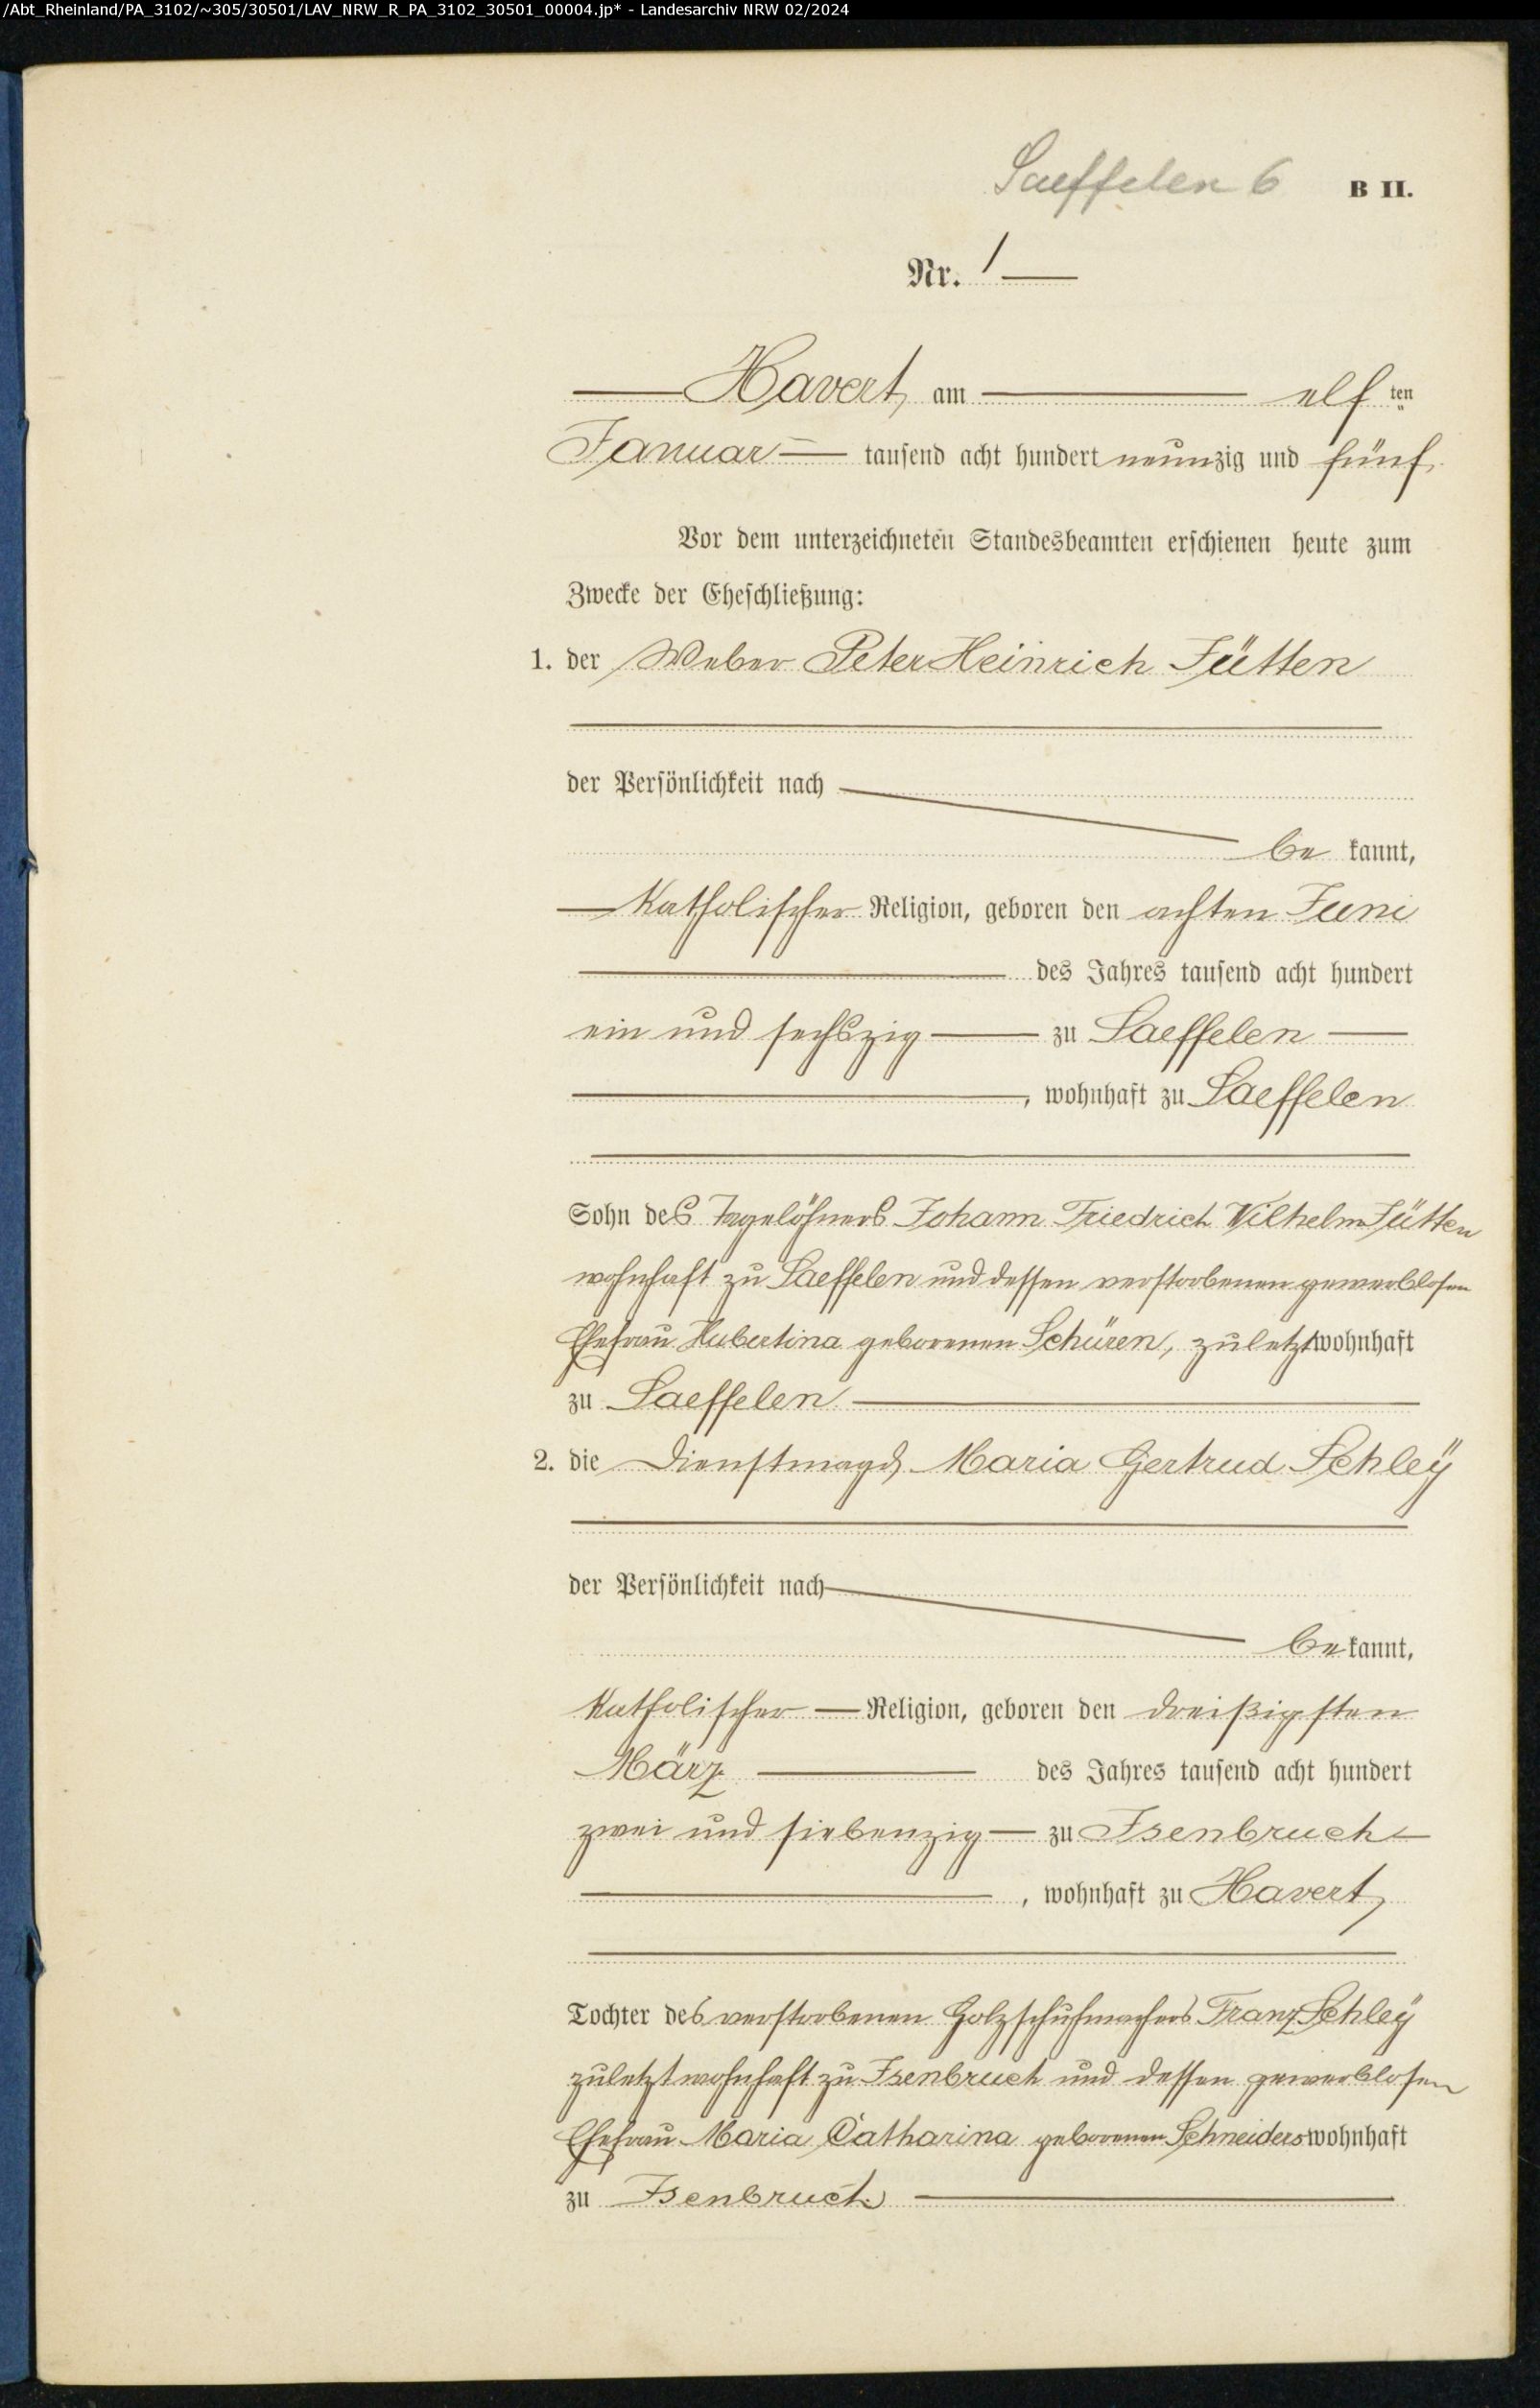 /Abt_Rheinland/PA_3102/~305/30501/LAV_NRW_R_PA_3102_30501_00004.jp* - Landesarchiv NRW 02/2024
Saeffelen 6 B II.
Nr. 1
Havert, am elf ten
Januar tausend acht hundert neunzig und fünf.
Vor dem unterzeichneten Standesbeamten erschienen heute zum
Zwecke der Eheschließung:
1. der Weber Peter Heinrich Jütten
der Persönlichkeit nach
be kannt,
katholischer Religion, geboren den achten Juni
des Jahres tausend acht hundert
ein und sechszig zu Saeffelen
, wohnhaft zu Saeffelen
Sohn des Tagelöhners Johann Friedrich Wilhelm Jütten
wohnhaft zu Saeffelen und dessen verstorbenen gewerblosen
Ehefrau Hubertina geborenen Schüren, zuletzt wohnhaft
zu Saeffelen
2. die Dienstmagd Maria Gertrud Schleÿ
der Persönlichkeit nach
be kannt,
katholischer Religion, geboren den dreißigsten
März des Jahres tausend acht hundert
zwei und siebenzig zu Isenbruch
, wohnhaft zu Havert,
Tochter des verstorbenen Holzschuhmachers Franz Schleÿ
zuletzt wohnhaft zu Isenbruch und dessen gewerblosen
Ehefrau Maria Catharina geborenen Schneiders wohnhaft
zu Isenbruch